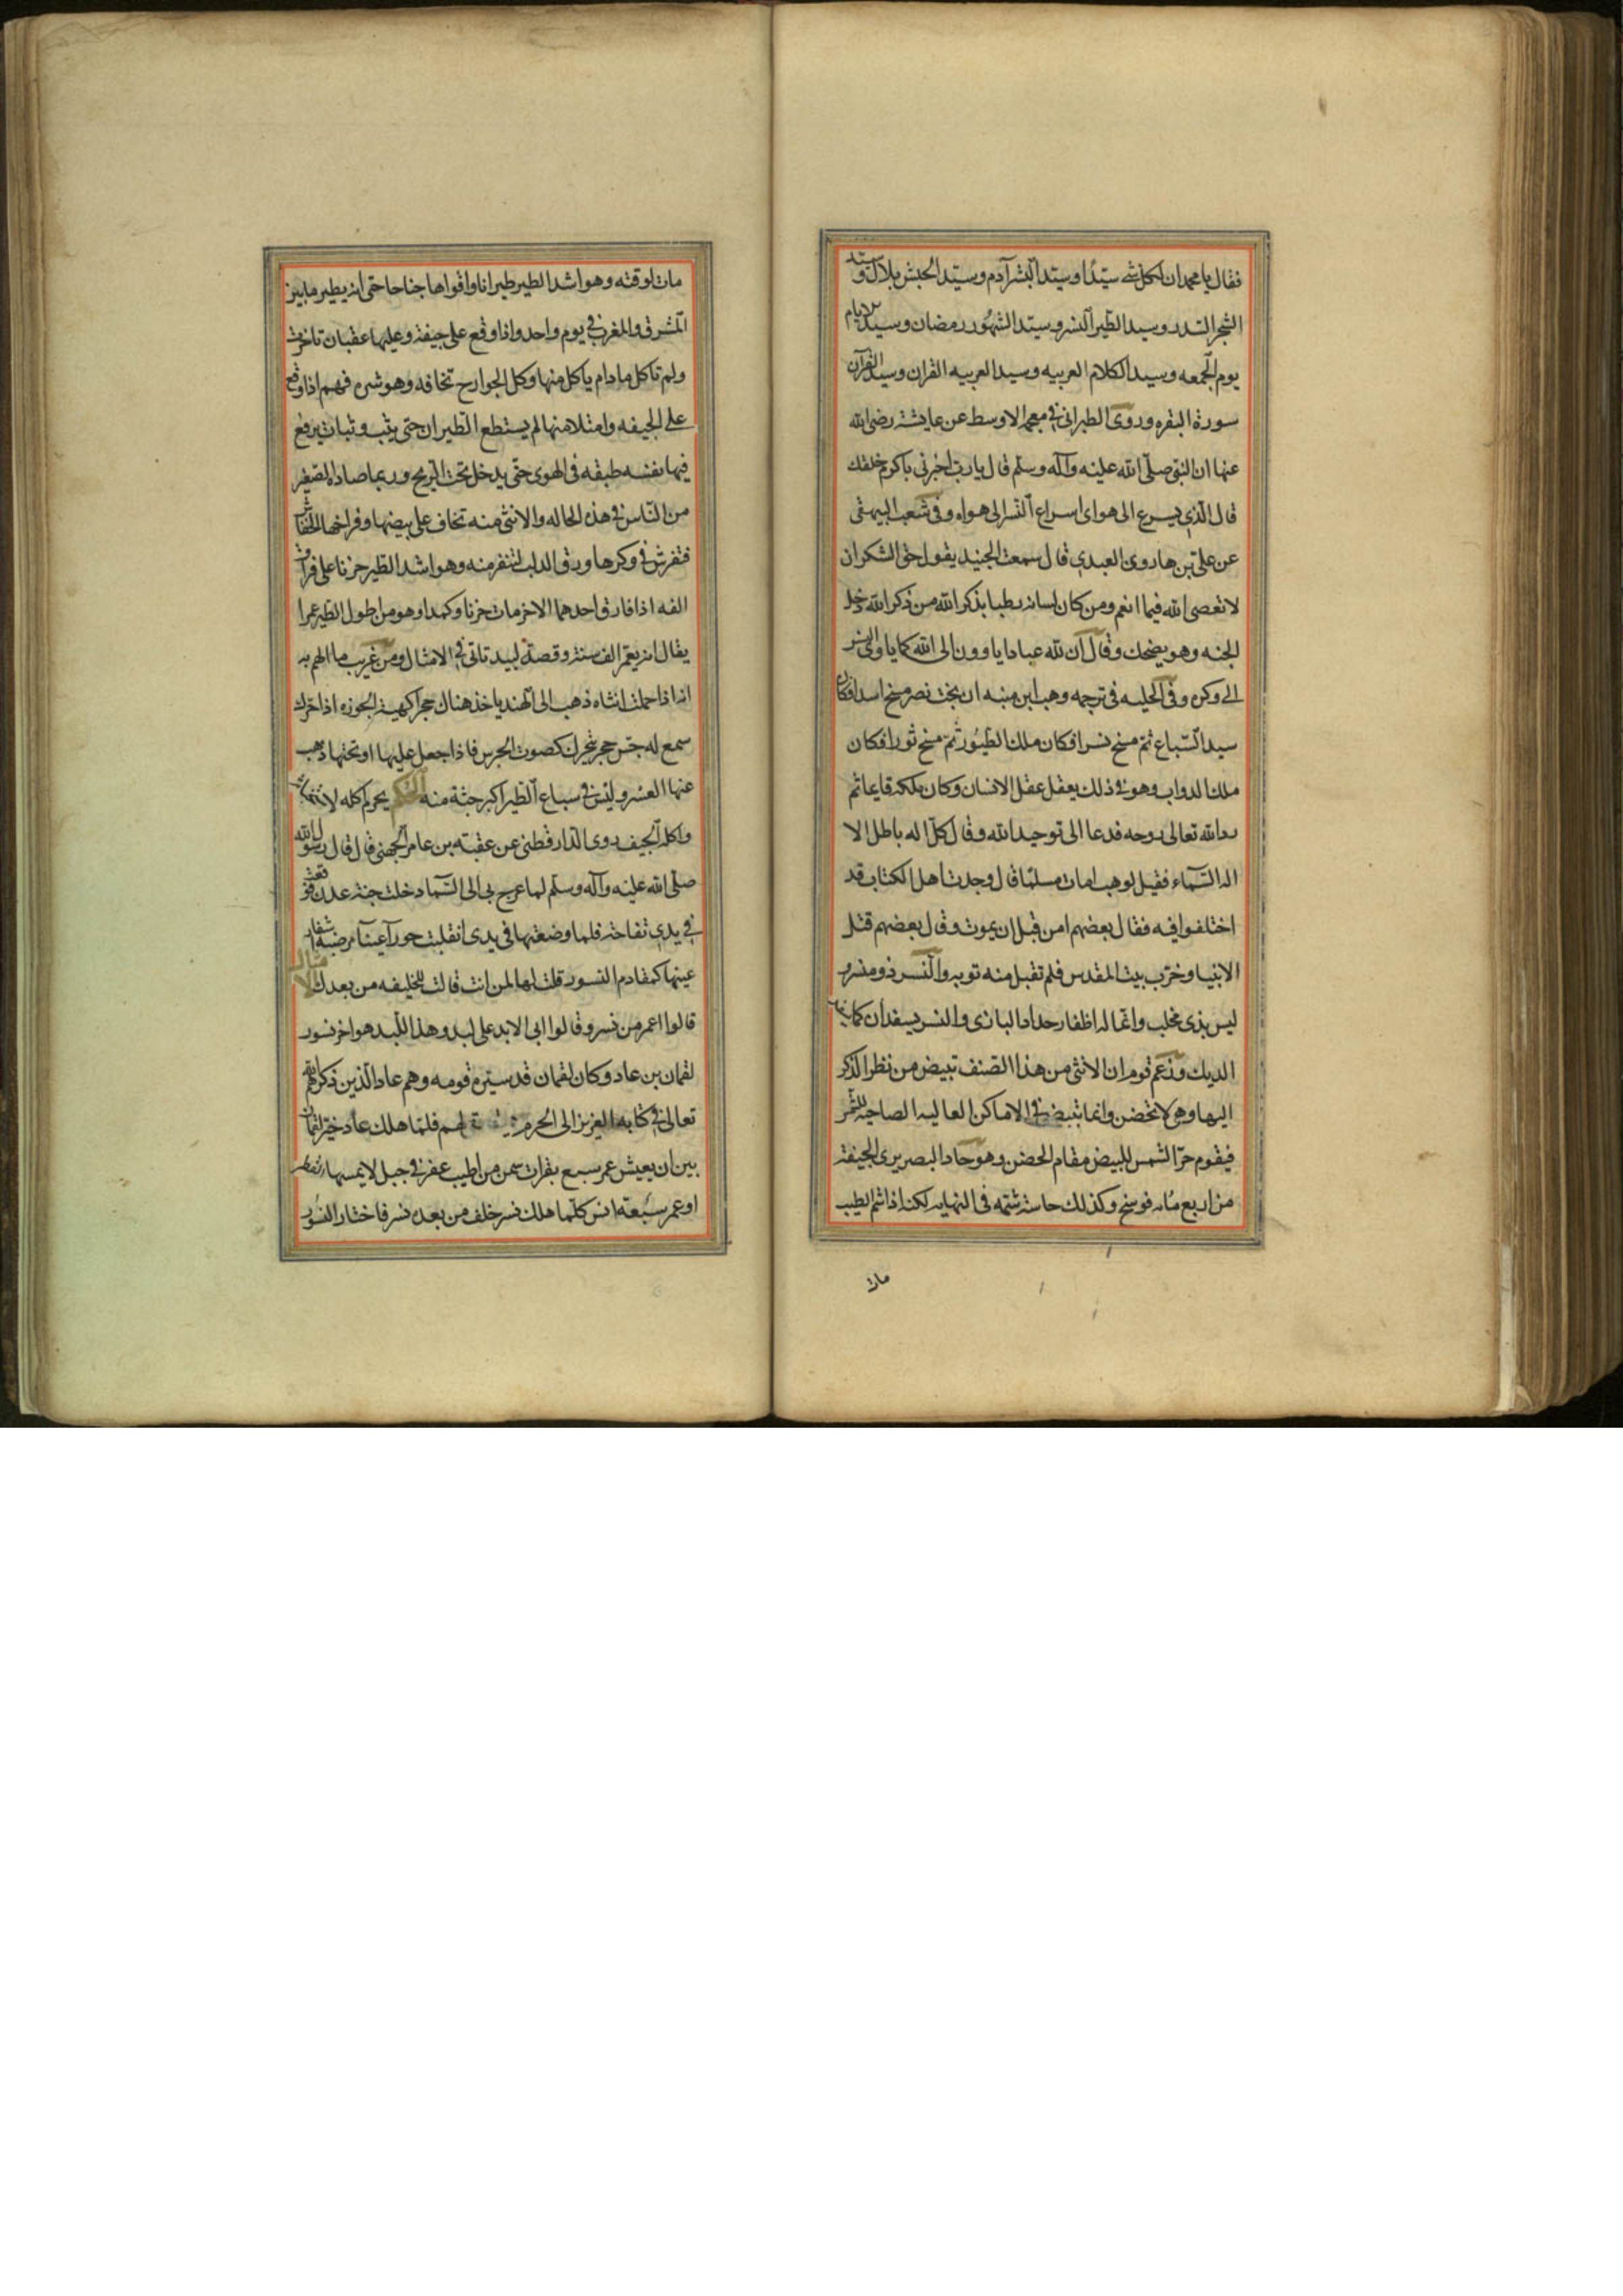 فقال يا محمد ان لكل شى سيّدًا وسيّد البشر آدم وسيّد الحبش بلال وسيّد
الشجر السدر وسيد الطير النسر وسيّد الشهُور رمضان وسيد الايام
يوم الجمعه وسيد الكلام العربيه وسيد العربيه القران وسيد القرآن
سورة البقره وروى الطبرانى فى معجمه الاوسط عن عايشة رضى الله
عنها ان النبى صلّى الله عليه وآله وسلّم قال يا رب اخبرنى باكرم خلقك
قال الّذى يسرع الى هواى اسراع النسر الى هواه وفى شعب البيهقى
عن على بن هارون العبدى قال سمعت الجنيد يقول حق الشكر ان
لا تعصى الله فيما انعم ومن كان لسانه رطبا بذكر الله من ذكر الله دخل
الجنه وهو يضحك وقال ان لله عبادا ياوون الى الله كما ياوى النسر
الى وكره وفى الحليه فى ترجمه وهب ابن منبه ان بخت نصر مسخ اسدا فكان
سيد السّباع ثمّ مسخ نسرا فكان ملك الطيُور ثمّ مسخ ثورا فكان
ملك الدواب وهو فى ذلك يعقل عقل الانسان وكان ملكه قايما ثم
رد الله تعالى روحه فدعا الى توحيد الله وقال كلّ اله باطل الا
اله السّماء فقيل لوهب امات مسلمًا قال وجدت اهل الكتاب قد
اختلفوا فيه فقال بعضهم امن قبل ان يموت وقال بعضهم قتل
الانبيا وخرّب بيت المقدس فلم تقبل منه توبه والنسر ذو منسر
ليس بذى مخلب وانّما له اظفار حداد البازى والنسر يسفدان كما
الديك وزعم قوم ان الانثى من هذا الصنف تبيض من نظر الذكر
اليها وهى لا تحضن وانما تبيض فى الاماكن العاليه الضاحيه للشمس
فيقوم حرّ الشمس للبيض مقام الحضن وهو حاد البصر يرى الجيفة
من اربع مايه فرسخ وكذلك حاسة شمّه فى النهايه لكنه اذا شم الطيب
مات
مات لوقته وهو اشد الطير طيرانا واقواها جناحا حتى انه يطير ما بين
المشرق والمغرب فى يوم واحد واذا وقع على جيفة وعليها عقبان تاخرت
ولم تاكل ما دام ياكل منها وكل الجوارح تخافه وهو شره فهم اذا وقع
على الجيفه وامتلا منها لم يستطع الطيران حتى يثب وثبات يرفع
فيها نفسه طبقه فى الهوى حتّى يدخل تحت الريح وربما صاده الصغير
من النّاس فى هذه الحاله والانثى منه تخاف على بيضها وفراخها الخفاش
فتفرش فى وكرها ورق الدلب لتنفر منه وهو اشد الطير حزنا على فراق
الفه اذا فارق احدهما الاخر مات حزنا وكمدا وهو من اطول الطير عمرا
يقال انه يعمّر الف سنة وقصة لبيد تاتى فى الامثال ومن غريب ما الهم به
انه اذا حملت انثاه ذهب الى الهند ياخذ هناك حجرا كهيئة الجوزه اذا حرك
سمع له حسّ حجر يتحرك كصوت الجرس فاذا جعل عليها او تحتها ذهب
عنها العسر وليس فى سباع الطير اكبر جثة منه الحكم يحرم اكله لاستخباثه
واكله الجيف روى الدارقطنى عن عقبة بن عامر الجهنى قال قال رسول الله
صلّى الله عليه وآله وسلّم لما عرج بى الى السّما دخلت جنة عدن فوقعت
فى يدى تفاحة فلما وضعتها فى يدى انقلبت حورآ عينآ مرضية اشفار
عينها كمقادم النسور قلت لها لمن انت قالت للخليفه من بعدك الامثال
قالوا اعمر من نسر وقالوا اتى الابد على لبد وهذا اللّبد هو اخر نسور
لقمان بن عاد وكان لقمان قد سيّره قومه وهم عاد الّذين ذكرهم الله
تعالى فى كتابه العزيز الى الحرم لهم فلمّا هلك عاد خيّر لقمان
بين ان يعيش عمر سبع بقرات سمر من اطيب عفر فى جبل لا يمسها القطر
او عمر سبعة انسر كلّما هلك نسر خلف من بعده نسر فاختار النسُور